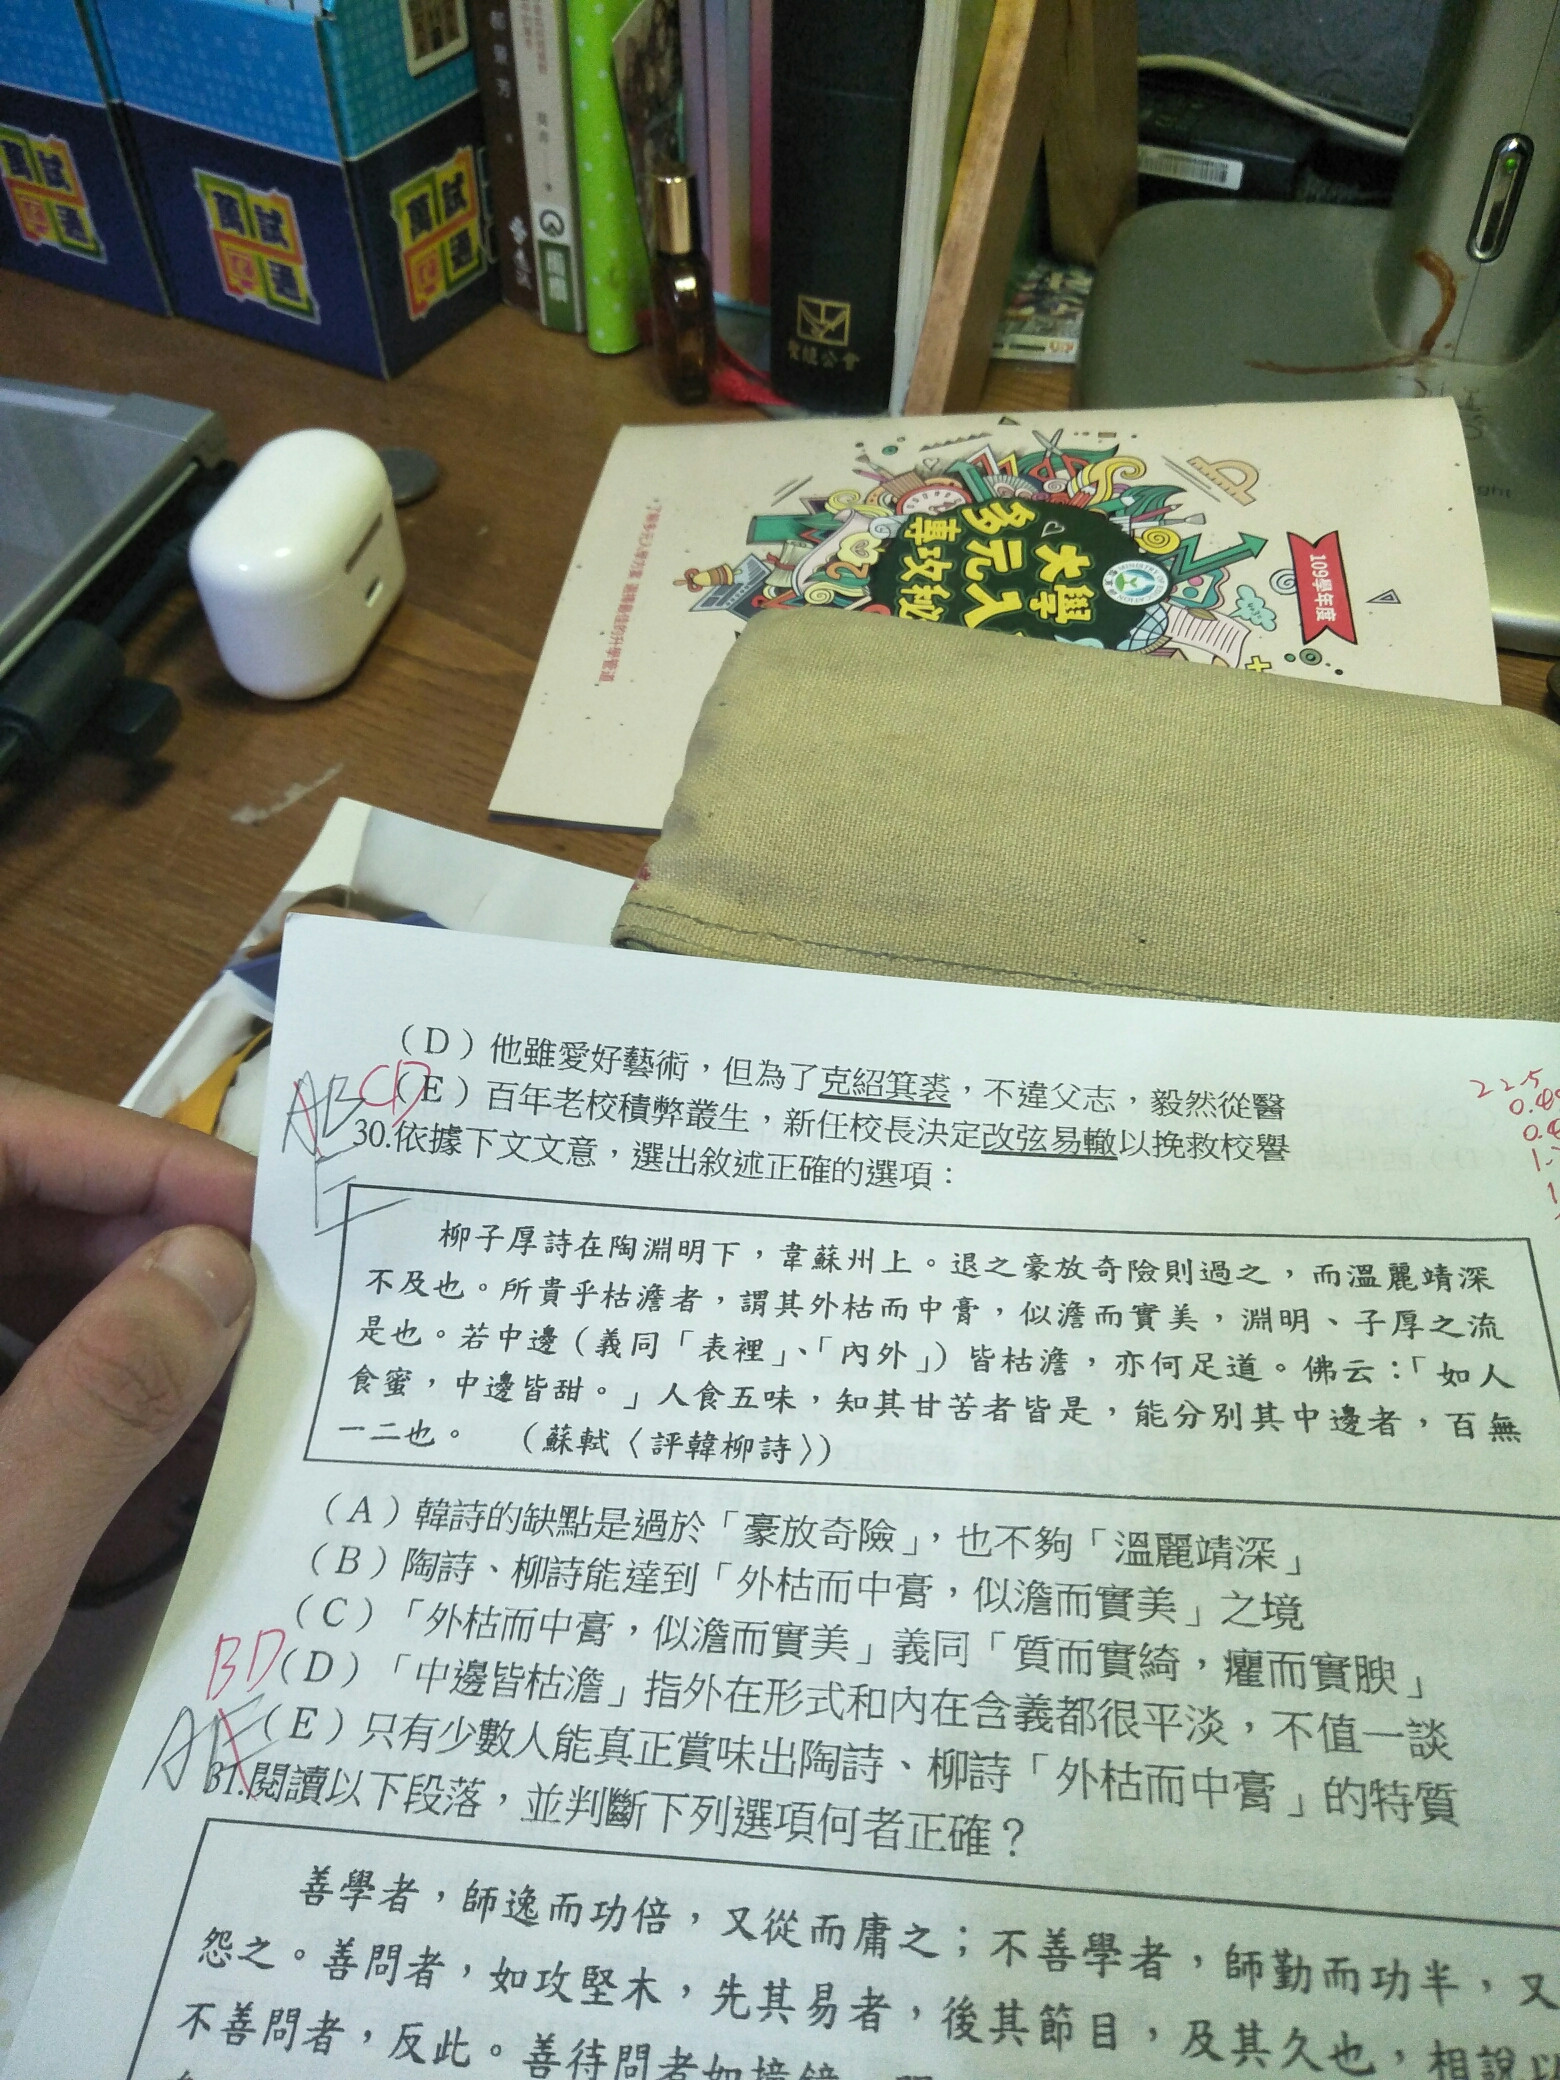 萬試通
萬試通
萬試通
聖經公會
109學年度
大學
多元入
專攻
了解多元入學方案 選擇最佳的升學管道
(D)他雖愛好藝術，但為了克紹箕裘，不違父志，毅然從醫
(E)百年老校積弊叢生，新任校長決定改弦易轍以挽救校譽
AB CD
E
22.5
30.依據下文文意，選出敘述正確的選項：
柳子厚詩在陶淵明下，韋蘇州上。退之豪放奇險則過之，而溫麗靖深
不及也。所貴乎枯澹者，謂其外枯而中膏，似澹而實美，淵明、子厚之流
是也。若中邊(義同「表裡」、「內外」)皆枯澹，亦何足道。佛云：「如人
食蜜，中邊皆甜。」人食五味，知其甘苦者皆是，能分別其中邊者，百無
一二也。 (蘇軾〈評韓柳詩〉)
(A)韓詩的缺點是過於「豪放奇險」，也不夠「溫麗靖深」
(B)陶詩、柳詩能達到「外枯而中膏，似澹而實美」之境
(C)「外枯而中膏，似澹而實美」義同「質而實綺，癯而實腴」
(D)「中邊皆枯澹」指外在形式和內在含義都很平淡，不值一談
(E)只有少數人能真正賞味出陶詩、柳詩「外枯而中膏」的特質
BD
AE
31.閱讀以下段落，並判斷下列選項何者正確？
善學者，師逸而功倍，又從而庸之；不善學者，師勤而功半，又
怨之。善問者，如攻堅木，先其易者，後其節目，及其久也，相說以
不善問者，反此。善待問者如撞鐘，